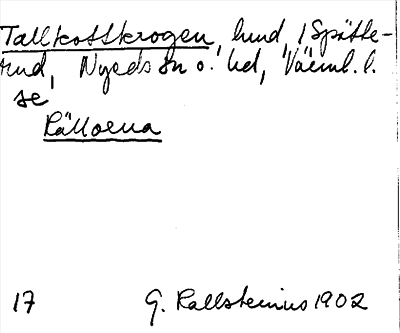 Tallkottkrogen, hmd, i Spätte-
rud, Nyeds sn o. hd, Värml. l.
se
Källorna
17 G. Kallstenius 1902